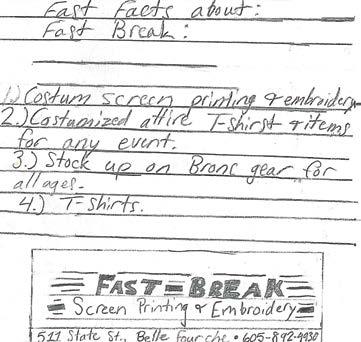 Fast Facts about:
Fast Break:
1.) Costum screen printing & embroidery
2.) Costamized attire T-shirst & items
for any event.
3.) Stock up on Bronc gear for
all ages.
4.) T-shirts.
FAST-BREAK
Screen Printing & Embroidery
511 State St., Belle Fourche • 605-892-4930